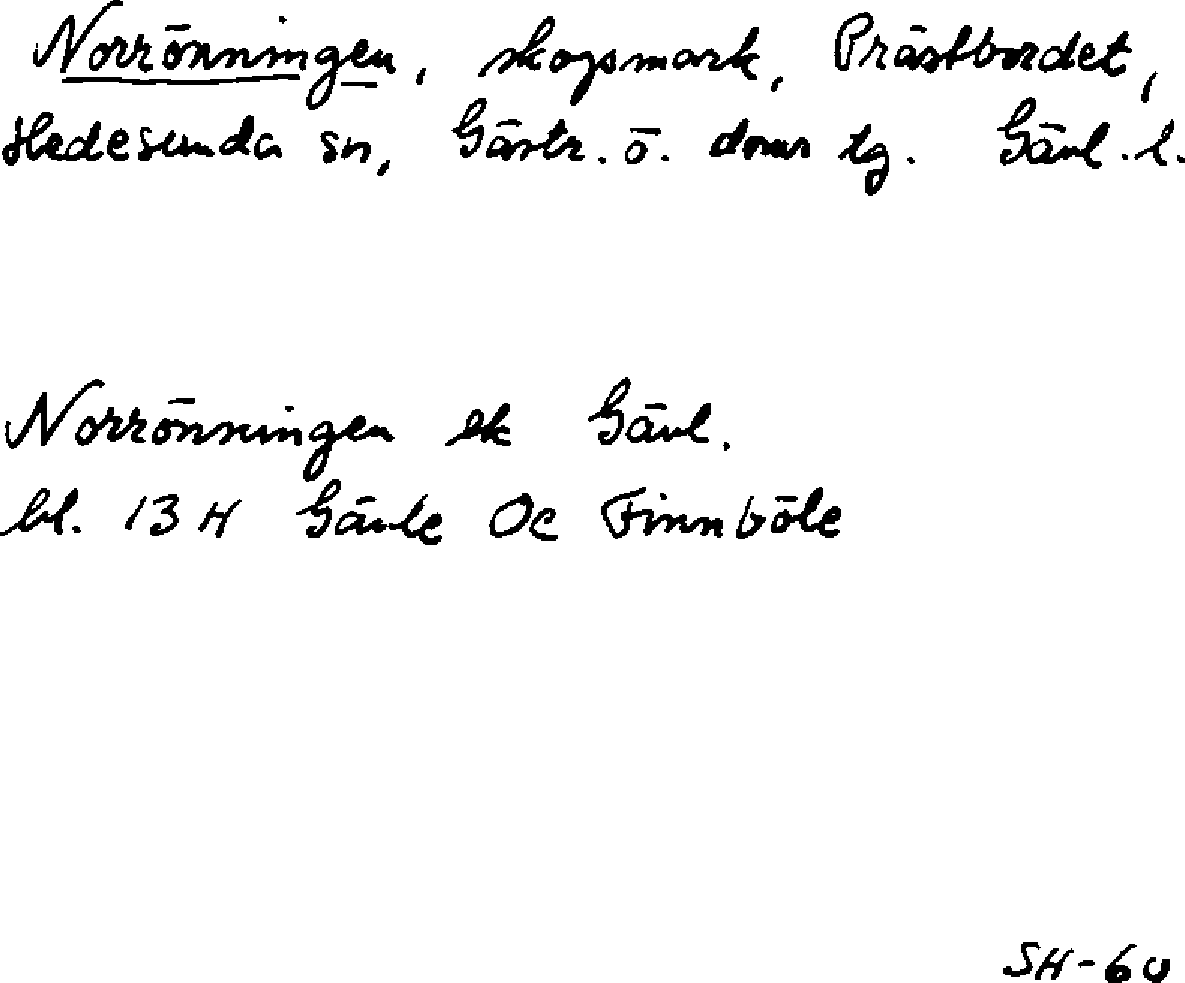 Norrönningen, skogsmark, Prästbordet,
Hedesunda sn, Gästr. ö. doms tg. Gävl. l.
Norrönningen ek Gävl.
bl. 13 H Gävle Oc Finnböle
SH-60